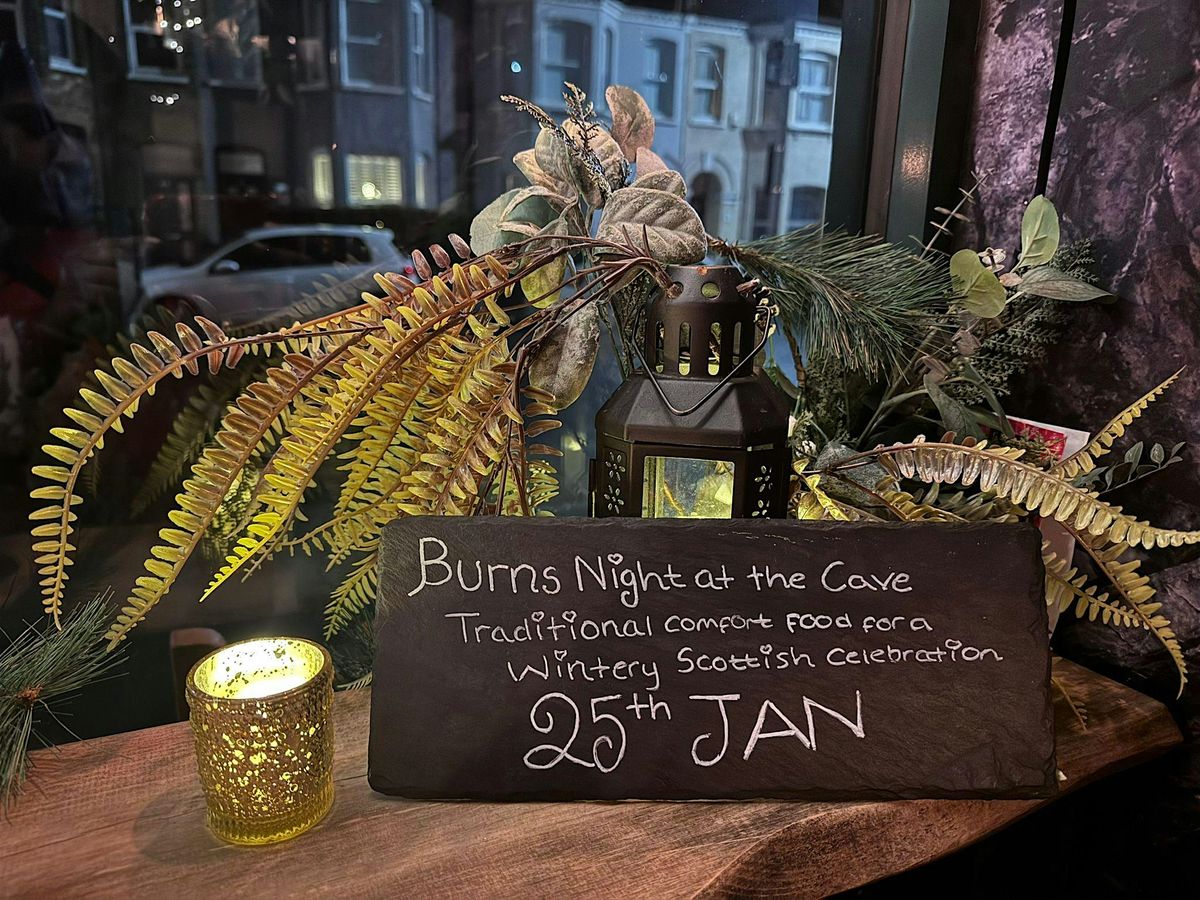 Burns Night at the Cave
Traditional comfort food for a
Wintery Scottish Celebration
25th JAN